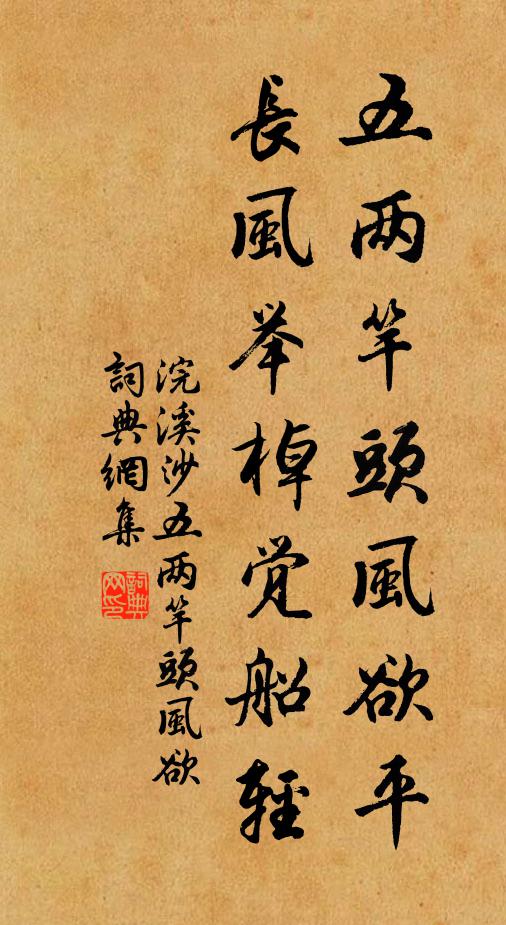 五两竿頭風欲平
長風举棹觉船輕
浣溪沙五两竿頭風欲
詞典網集
詞典网印